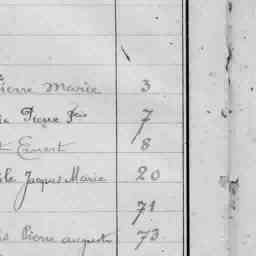 Pierre Marie 3
Pierre fois 7
Ernest 8
Jacques Marie 20
71
Pierre auguste 73